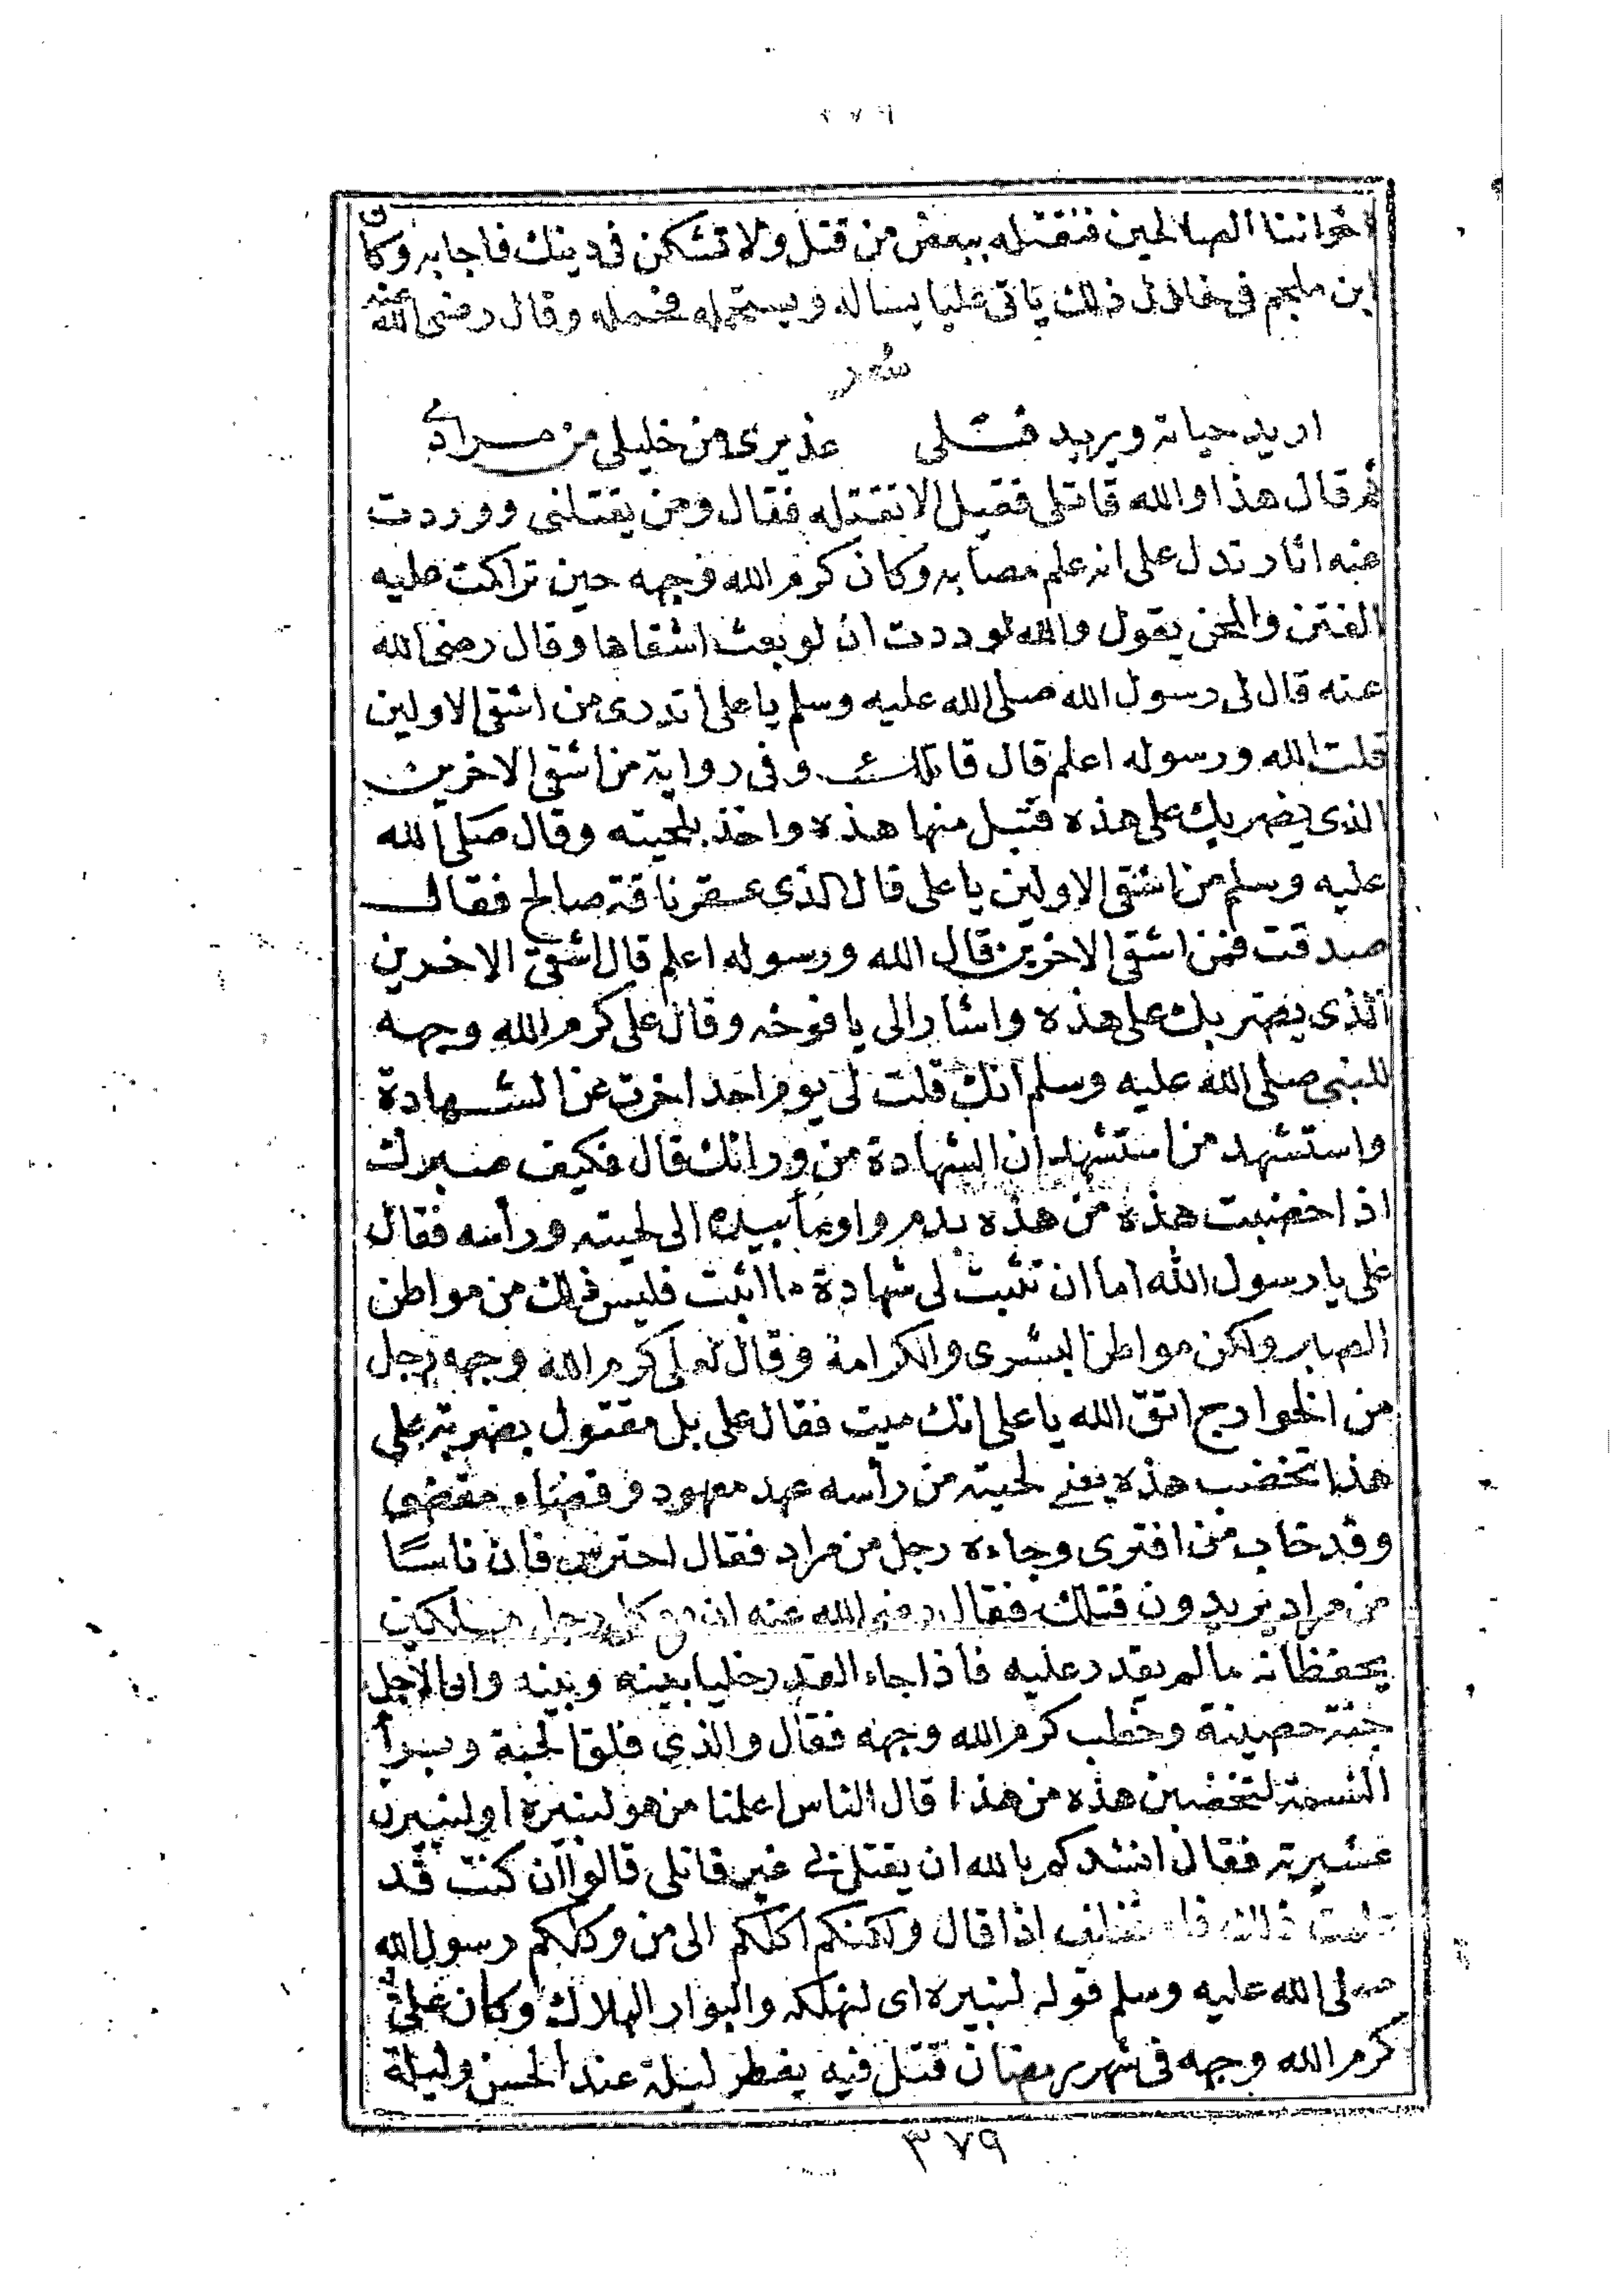 ٣٧٩
اخواننا الصالحين فنقتله ببعض من قتل ولا تشكن في دينك فاجابه وكان
ابن ملجم في خلال ذلك ياتي عليا يساله ويستحمله فحمله وقال رضي الله عنه
شعر
اريد حياته ويريد قتلي عذيري من خليلي من مرادي
ثم قال هذا والله قاتلي فقيل الا نقتله فقال ومن يقتلني ووردت
عنه اثار تدل على انه علم مصابه وكان كرم الله وجهه حين تراكت عليه
الفتن والمحن يقول والله لوددت ان لو بعث اشقاها وقال رضي الله
عنه قال لي رسول الله صلى الله عليه وسلم يا على اتدري من اشقى الاولين
قلت الله ورسوله اعلم قال قاتلك وفي رواية من اشقى الاخرين
الذي يضربك على هذه فتبل منها هذه واخذ بلحيته وقال صلى الله
عليه وسلم من اشقى الاولين يا على قال الذي عقر ناقة صالح فقال
صدقت فمن اشقى الاخرين قال الله ورسوله اعلم قال اشقى الاخرين
الذي يضربك على هذه واشار الى يافوخه وقال على كرم الله وجهه
للنبي صلى الله عليه وسلم انك قلت لي يوم احد اخرت عن الشهادة
واستشهد من استشهد ان الشهادة من ورائك قال فكيف صبرك
اذا خضبت هذه من هذه بدم واومأ بيده الى لحيته ورأسه فقال
على يا رسول الله اما ان تثبت لي شهادة ما اثبت فليس ذلك من مواطن
الصبر ولكن مواطن البشرى والكرامة وقال لعلى كرم الله وجهه رجل
من الخوارج اتق الله يا على انك ميت فقال على بل مقتول بضربة على
هذا تخضب هذه يعني لحيته من رأسه عهد معهود وقضاء مقضي
وقد خاب من افترى وجاءه رجل من مراد فقال احترس فان ناسًا
من مراد يريدون قتلك فقال رضي الله عنه ان مع كل رجل ملكين
يحفظانه مالم يقدر عليه فاذا جاء القدر خليا بينه وبينه وان الاجل
جنة حصينة وخطب كرم الله وجهه فقال والذي فلق الحبة وبرأ
النسمة لتخضبن هذه من هذا قال الناس اعلمنا من هو لنبيره او لنبيرن
عشيرته فقال انشدكم بالله ان يقتل بي غير قاتلي قالوا ان كنت قد
علمت ذلك اذا قال ولكنكم اكلكم الى من وكلكم رسول الله
صلى الله عليه وسلم قوله لنبيره اى لنهلكه والبوار الهلاك وكان على
كرم الله وجهه في شهر رمضان قتل فيه يفطر ليلة عند الحسن وليلة
٣٧٩